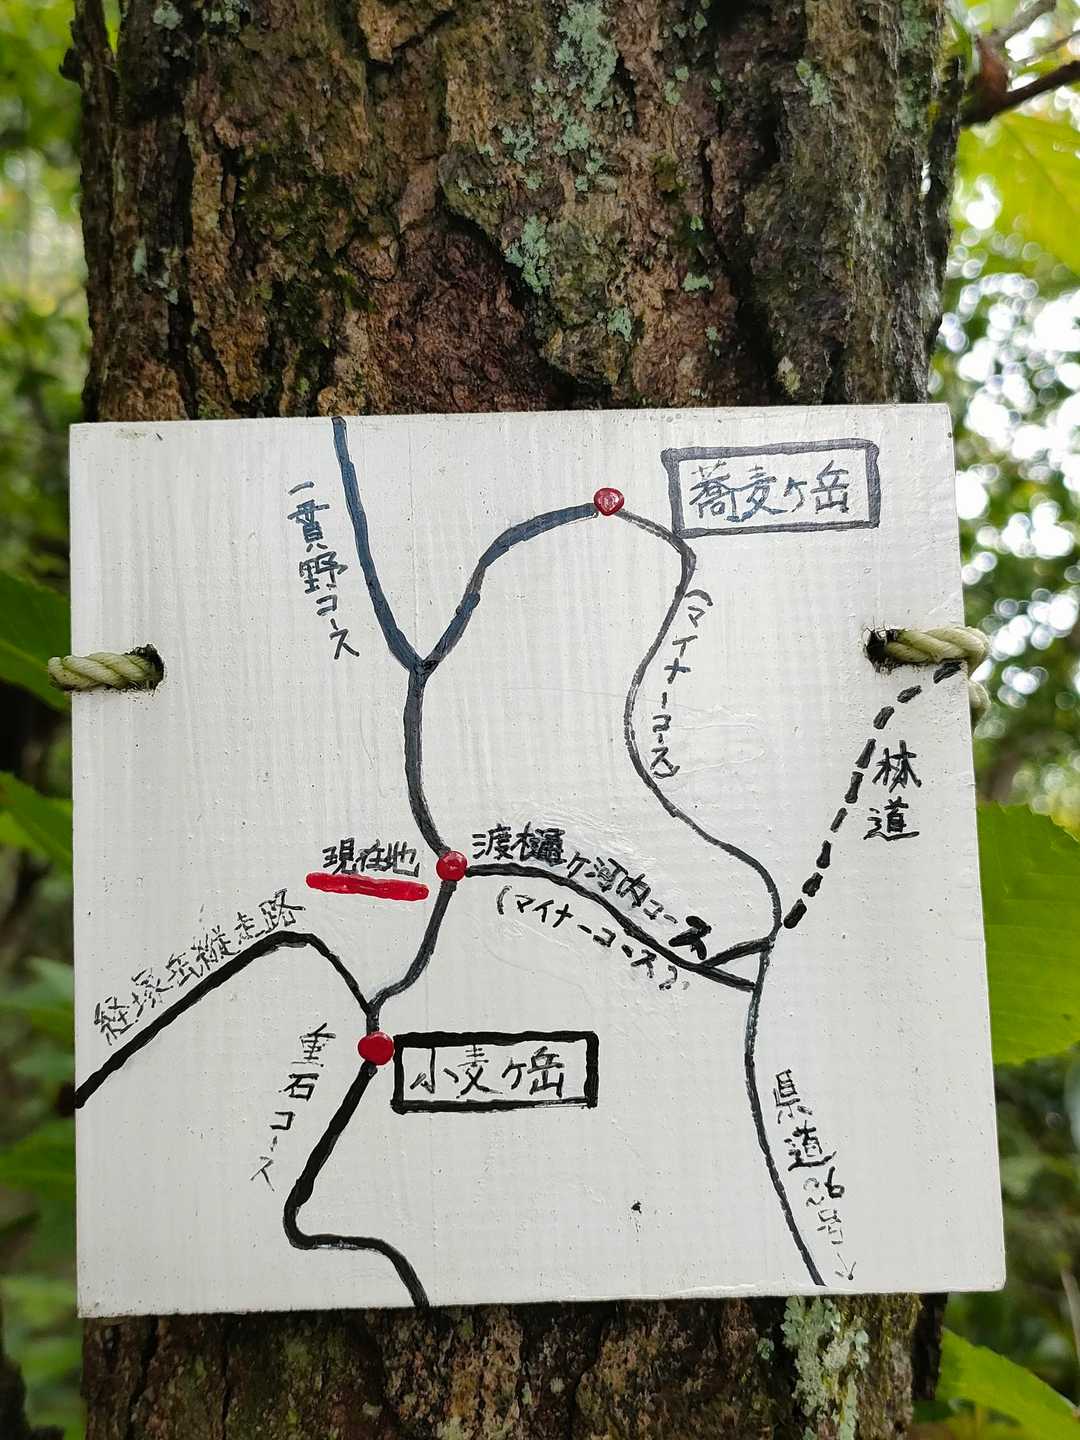 蕎麦ヶ岳
一貫野コース
(マイナーコース)
林道
現在地
渡樋ヶ河内コース
(マイナーコース)
経塚岳縦走路
重石コース
小麦ヶ岳
県道26号へ